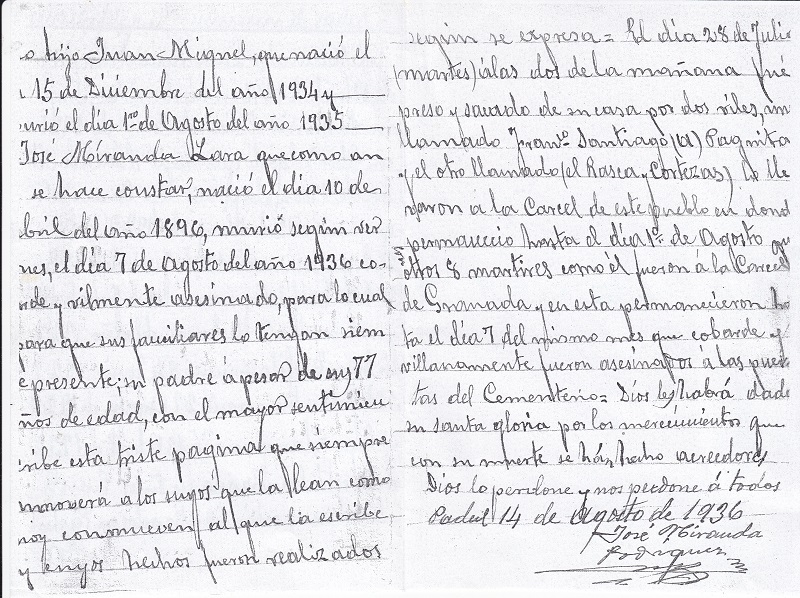 o hijo Juan Miguel, que nació el
15 de Diciembre del año 1934 y
urió el día 1ro de Agosto del año 1935
José Miranda Lara que como an
se hace constar, nació el dia 10 de
bril del año 1896, murió según ver
nes, el día 7 de Agosto del año 1936 co-
rde y vilmente asesinado, para lo cual
para que sus familiares lo tengan siem
e presente; su padre á pesar de sus 77
ños de edad, con el mayor sentimien
cribe esta triste pagina que siempre
nmoverá a los suyos que la lean como
hoy conmueven al que la escribe
y cuyos hechos fueron realizados
según se expresa = El día 28 de Julio
(martes) á las dos de la mañana fué
preso y sacado de su casa por dos viles, un
llamado Franco Santiago (a) Paquitra
y el otro llamado (el Rasca y Cortezas) lo lle
varon á la Carcel de este pueblo en dond
permaneció hasta el día 1º de Agosto que
otros 8 martires como él fueron á la Carcel
de Granada y en esta permanecieron ha
ta el día 7 del mismo mes que cobarde y
villanamente fueron asesinados a las puer
tas del Cementerio = Dios les habrá dado
su santa gloria por los merecimientos que
con su muerte se han hecho acreedores
Dios lo perdone y nos perdone á todos
Padul 14 de Agosto de 1936
José Miranda
Rodriguez